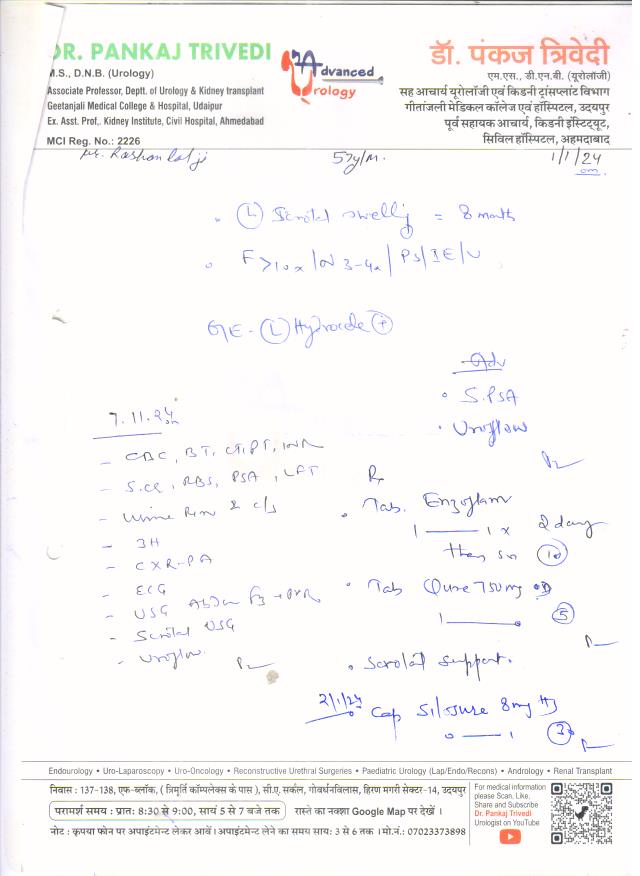 DR. PANKAJ TRIVEDI
M.S., D.N.B. (Urology)
Associate Professor, Deptt. of Urology & Kidney transplant
Geetanjali Medical College & Hospital, Udaipur
Ex. Asst. Prof., Kidney Institute, Civil Hospital, Ahmedabad
MCI Reg. No.: 2226
Advanced
Urology
डॉ. पंकज त्रिवेदी
एम.एस., डी.एन.बी. (यूरोलॉजी)
सह आचार्य यूरोलॉजी एवं किडनी ट्रांसप्लांट विभाग
गीतांजली मेडिकल कॉलेज एवं हॉस्पिटल, उदयपुर
पूर्व सहायक आचार्य, किडनी इंस्टिट्यूट,
सिविल हॉस्पिटल, अहमदाबाद
57y/M. 1/1/24
• (L) Scrotal swelling = 8 month
• F>10x/N3-4x/PS/IE/U
G/E- (L) Hydrocele (+)
Adv
• S.PSA
• Uroflow
7.11.24
- CBC, BT, CT, PT, INR
- S.CR, RBS, PSA, LFT
- Urine R/M & C/S
- 3H
- CXR-PA
- ECG
- USG
- Scrotal USG
- Uroflow.
Rx
• Tab. Enzoflam
1 — 1 x 2 day
then (10)
• Tab Qure 750mg OD
1 — (5)
• Scrotal support.
2/1/24 Cap Silosure 8mg HS
0 — 1 (30)
Endourology • Uro-Laparoscopy • Uro-Oncology • Reconstructive Urethral Surgeries • Paediatric Urology (Lap/Endo/Recons) • Andrology • Renal Transplant
निवास : 137-138, एफ-ब्लॉक, ( त्रिमूर्ति कॉम्पलेक्स के पास ), सी.ए. सर्कल, गोवर्धनविलास, हिरण मगरी सेक्टर-14, उदयपुर
परामर्श समय : प्रात: 8:30 से 9:00, सायं 5 से 7 बजे तक रास्ते का नक्शा Google Map पर देखें ।
नोट : कृपया फोन पर अपाइंटमेन्ट लेकर आवें । अपाइंटमेन्ट लेने का समय साय: 3 से 6 तक । मो.नं.: 07023373898
For medical information
please Scan, Like,
Share and Subscribe
Dr. Pankaj Trivedi
Urologist on YouTube